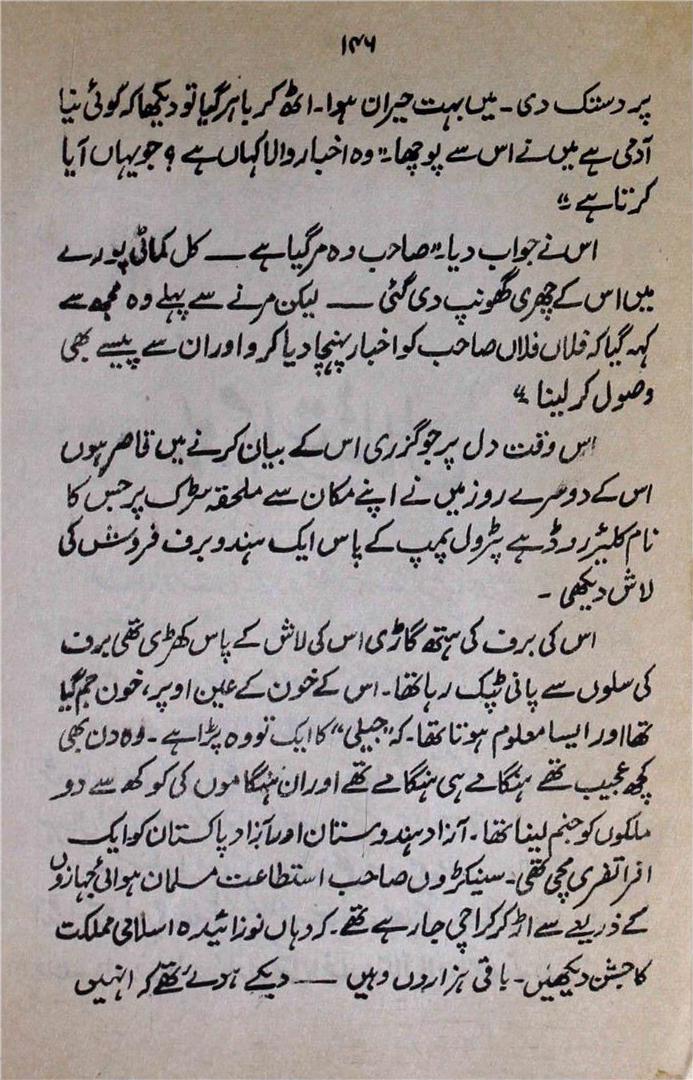 ۱۴۶
پر دستک دی۔ میں بہت حیران ہوا۔ اٹھ کر باہر گیا تو دیکھا کہ کوئی نیا
آدمی ہے میں نے اس سے پوچھا۔ "وہ اخبار والا کہاں ہے ؟ جو یہاں آیا
کرتا ہے۔"
اس نے جواب دیا۔ "صاحب وہ مر گیا ہے — کل کماٹی پورے
میں اس کے چھری گھونپ دی گئی — لیکن مرنے سے پہلے وہ مجھ سے
کہہ گیا کہ فلاں فلاں صاحب کو اخبار پہنچا دیا کرو اور ان سے پیسے بھی
وصول کر لینا۔"
اس وقت دل پر جو گزری اس کے بیان کرنے میں قاصر ہوں
اس کے دوسرے روز میں نے اپنے مکان سے ملحقہ سڑک پر جس کا
نام کلیئر روڈ ہے پٹرول پمپ کے پاس ایک ہندو برف فروش کی
لاش دیکھی ۔
اس کی برف کی ہتھ گاڑی اس کی لاش کے پاس کھڑی تھی برف
کی سلوں سے پانی ٹپک رہا تھا۔ اس کے خون کے عین اوپر، خون جم گیا
تھا اور ایسا معلوم ہوتا تھا۔ کہ "جیلی" کا ایک تودہ پڑا ہے۔ وہ دن بھی
کچھ عجیب تھے ہنگامے ہی ہنگامے تھے اور ان ہنگاموں کی کوکھ سے دو
ملکوں کو جنم لینا تھا۔ آزاد ہندوستان اور آزاد پاکستان کو ایک
افراتفری مچی تھی۔ سینکڑوں صاحب استطاعت مسلمان ہوائی جہازوں
کے ذریعے سے اڑ کر کراچی جا رہے تھے۔ کہ وہاں نوزائیدہ اسلامی مملکت
کا جشن دیکھیں۔ باقی ہزاروں وہیں — دبکے ہوئے تھے کہ انہیں